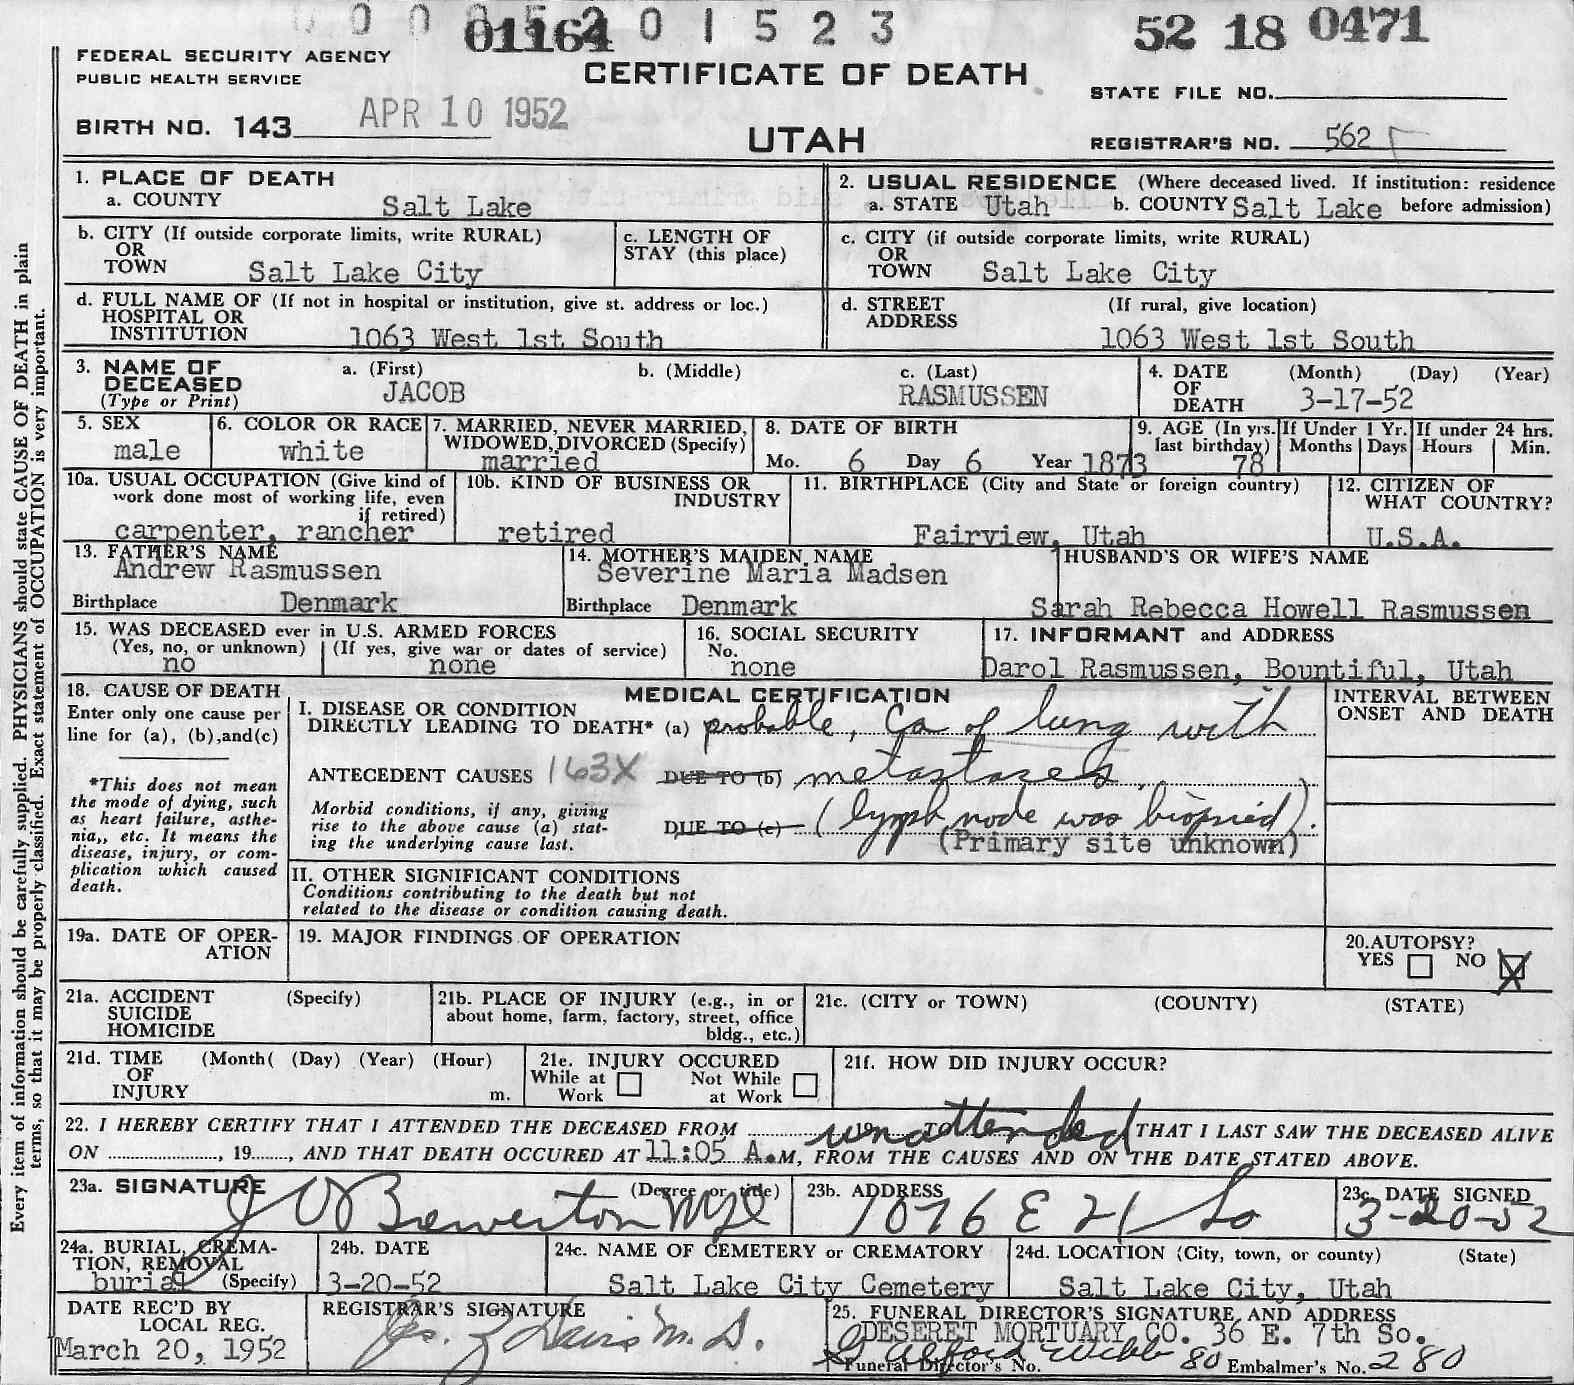 01164 0 1 5 2 3
52 18 0471
FEDERAL SECURITY AGENCY
PUBLIC HEALTH SERVICE
CERTIFICATE OF DEATH
STATE FILE NO.
BIRTH NO. 143 APR 10 1952
UTAH
REGISTRAR'S NO. 562
Every item of information should be carefully supplied. PHYSICIANS should state CAUSE OF DEATH in plain
terms, so that it may be properly classified. Exact statement of OCCUPATION is very important.
1. PLACE OF DEATH
a. COUNTY Salt Lake
2. USUAL RESIDENCE (Where deceased lived. If institution: residence
a. STATE Utah b. COUNTY Salt Lake before admission)
b. CITY (If outside corporate limits, write RURAL)
OR
TOWN Salt Lake City
c. LENGTH OF
STAY (this place)
c. CITY (if outside corporate limits, write RURAL)
OR
TOWN Salt Lake City
d. FULL NAME OF (If not in hospital or institution, give st. address or loc.)
HOSPITAL OR
INSTITUTION 1063 West 1st South
d. STREET (If rural, give location)
ADDRESS
1063 West 1st South
3. NAME OF a. (First) b. (Middle) c. (Last)
DECEASED JACOB RASMUSSEN
(Type or Print)
4. DATE (Month) (Day) (Year)
OF
DEATH 3-17-52
5. SEX
male
6. COLOR OR RACE
white
7. MARRIED, NEVER MARRIED,
WIDOWED, DIVORCED (Specify)
married
8. DATE OF BIRTH
Mo. 6 Day 6 Year 1873
9. AGE (In yrs.
last birthday)
78
If Under 1 Yr.
Months Days
If under 24 hrs.
Hours Min.
10a. USUAL OCCUPATION (Give kind of
work done most of working life, even
if retired)
carpenter, rancher
10b. KIND OF BUSINESS OR
INDUSTRY
retired
11. BIRTHPLACE (City and State or foreign country)
Fairview, Utah
12. CITIZEN OF
WHAT COUNTRY?
U.S.A.
13. FATHER'S NAME
Andrew Rasmussen
Birthplace Denmark
14. MOTHER'S MAIDEN NAME
Severine Maria Madsen
Birthplace Denmark
HUSBAND'S OR WIFE'S NAME
Sarah Rebecca Howell Rasmussen
15. WAS DECEASED ever in U.S. ARMED FORCES
(Yes, no, or unknown) (If yes, give war or dates of service)
no none
16. SOCIAL SECURITY
No.
none
17. INFORMANT and ADDRESS
Darol Rasmussen, Bountiful, Utah
18. CAUSE OF DEATH
Enter only one cause per
line for (a), (b), and (c)
*This does not mean
the mode of dying, such
as heart failure, asthe-
nia,, etc. It means the
disease, injury, or com-
plication which caused
death.
MEDICAL CERTIFICATION
I. DISEASE OR CONDITION
DIRECTLY LEADING TO DEATH* (a) probable, Ca of lung with
ANTECEDENT CAUSES 163X DUE TO (b) metastases
Morbid conditions, if any, giving
rise to the above cause (a) stat-
ing the underlying cause last.
DUE TO (c) (lymph node was biopsied).
(Primary site unknown)
INTERVAL BETWEEN
ONSET AND DEATH
II. OTHER SIGNIFICANT CONDITIONS
Conditions contributing to the death but not
related to the disease or condition causing death.
19a. DATE OF OPER-
ATION
19. MAJOR FINDINGS OF OPERATION
20. AUTOPSY?
YES NO X
21a. ACCIDENT (Specify)
SUICIDE
HOMICIDE
21b. PLACE OF INJURY (e.g., in or
about home, farm, factory, street, office
bldg., etc.)
21c. (CITY or TOWN) (COUNTY) (STATE)
21d. TIME (Month( (Day) (Year) (Hour)
OF
INJURY m.
21e. INJURY OCCURED
While at Work Not While at Work
21f. HOW DID INJURY OCCUR?
22. I HEREBY CERTIFY THAT I ATTENDED THE DECEASED FROM unattended 19 TO THAT I LAST SAW THE DECEASED ALIVE
ON , 19 , AND THAT DEATH OCCURED AT 11:05 A.M, FROM THE CAUSES AND ON THE DATE STATED ABOVE.
23a. SIGNATURE (Degree or title)
J O Brewerton MD
23b. ADDRESS
1076 E 21 So
23c. DATE SIGNED
3-20-52
24a. BURIAL, CREMA-
TION, REMOVAL
burial (Specify)
24b. DATE
3-20-52
24c. NAME OF CEMETERY or CREMATORY
Salt Lake City Cemetery
24d. LOCATION (City, town, or county) (State)
Salt Lake City, Utah
DATE REC'D BY
LOCAL REG.
March 20, 1952
REGISTRAR'S SIGNATURE
Davis M.D.
25. FUNERAL DIRECTOR'S SIGNATURE AND ADDRESS
DESERET MORTUARY CO. 36 E. 7th So.
Alford Webb
Funeral Director's No. 80 Embalmer's No. 280